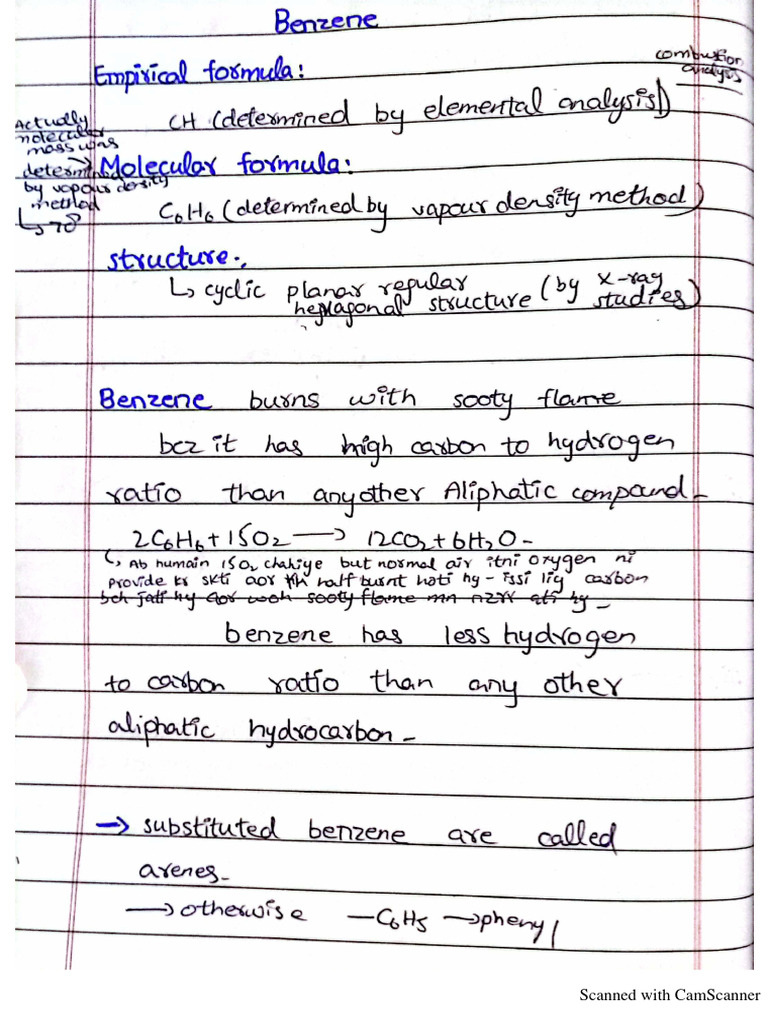 Benzene
Empirical formula:
combustion
analysis
CH (determined by elemental analysis)
Actually
molecular
mass was
determined
by vapour density
method
↳ 78
→ Molecular formula:
C6H6 (determined by vapour density method)
structure:
↳ cyclic planar regular
hexagonal structure (by x-ray
studies)
Benzene burns with sooty flame
bcz it has high carbon to hydrogen
ratio than anyother Aliphatic compound-
2C6H6 + 15O2 → 12CO2 + 6H2O-
↳ Ab humain 15O2 chahiye but normal air itni oxygen ni
provide kr skti aor half burnt hoti hy - issi liy carbon
bch jati hy aor woh sooty flame mn nzr ati hy-
benzene has less hydrogen
to carbon ratio than any other
aliphatic hydrocarbon-
→ substituted benzene are called
arenes-
→ otherwise -C6H5 → phenyl
Scanned with CamScanner